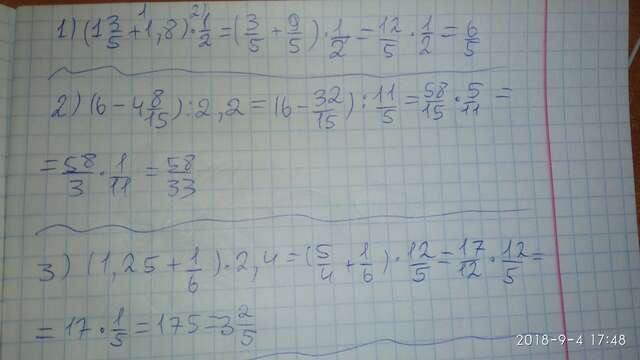 1) (1 3/5 + 1,8) · 1/2 = (3/5 + 9/5) · 1/2 = 12/5 · 1/2 = 6/5
2) (6 - 4 8/15) : 2,2 = (6 - 32/15) : 11/5 = 58/15 · 5/11 =
= 58/3 · 1/11 = 58/33
3) (1,25 + 1/6) · 2,4 = (5/4 + 1/6) · 12/5 = 17/12 · 12/5 =
= 17 · 1/5 = 175 = 3 2/5
2018-9-4 17:48